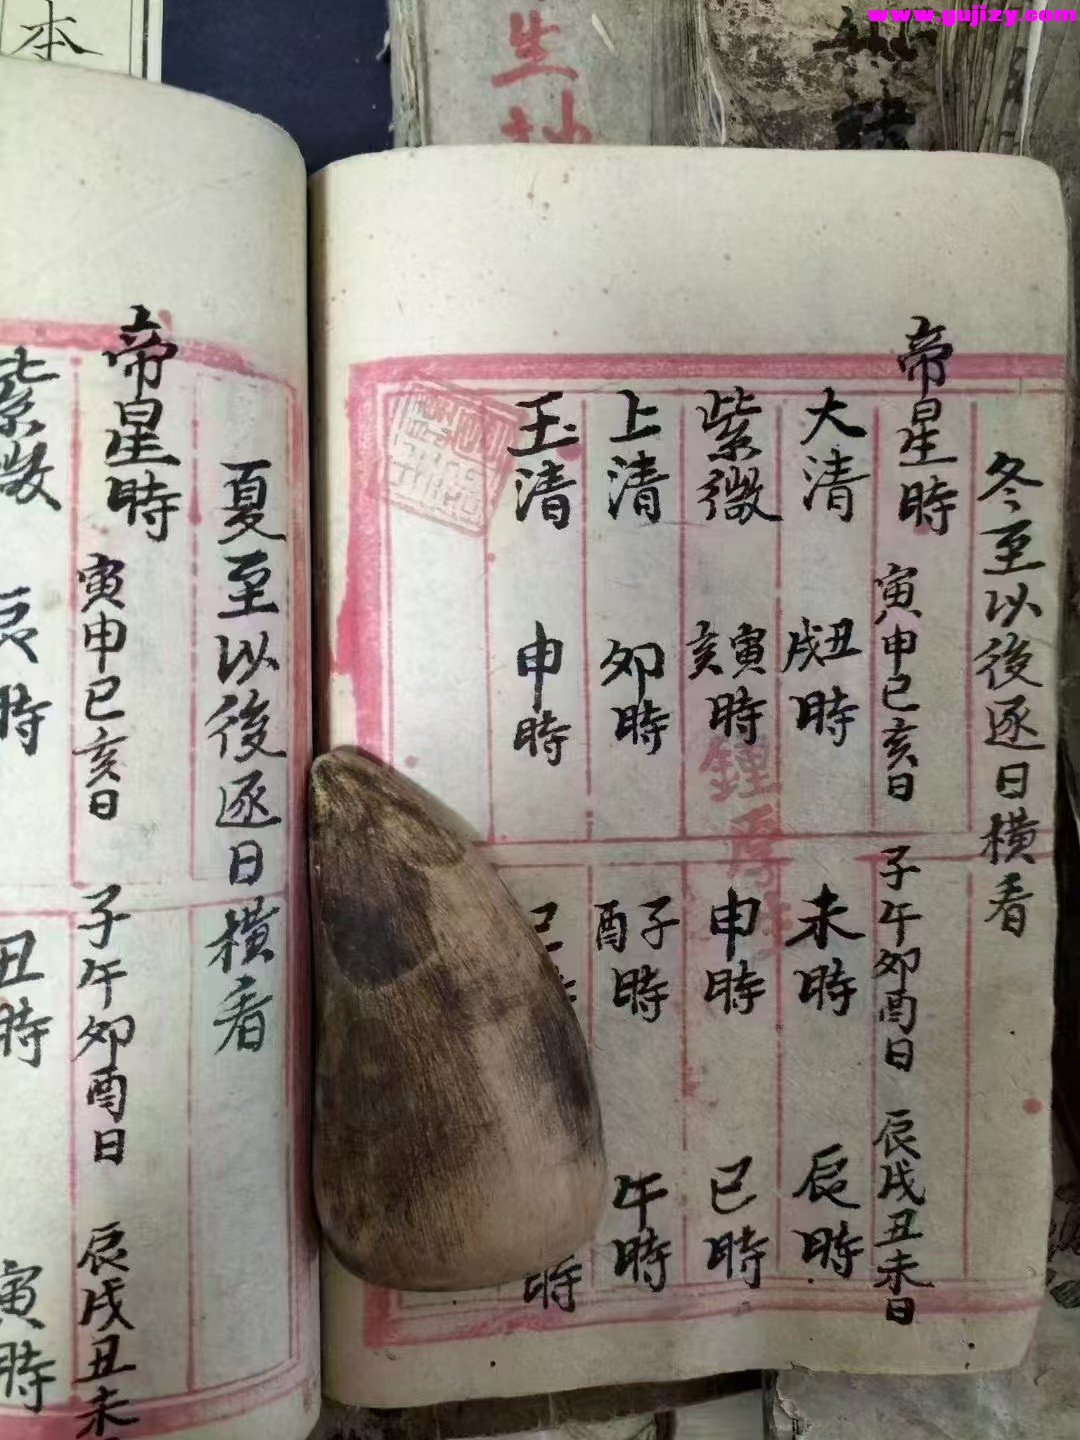 www.gujizy.com
本
生抄
冬至以後逐日横看
帝星時 寅申巳亥日 子午卯酉日 辰戌丑未日
大清 丑戌時 未時 辰時
紫微 寅亥時 申時 巳時
上清 卯時 子酉時 午時
玉清 申時 時
鍾
夏至以後逐日横看
帝星時 寅申巳亥日 子午卯酉日 辰戌丑未
紫微 辰時 丑時 寅時